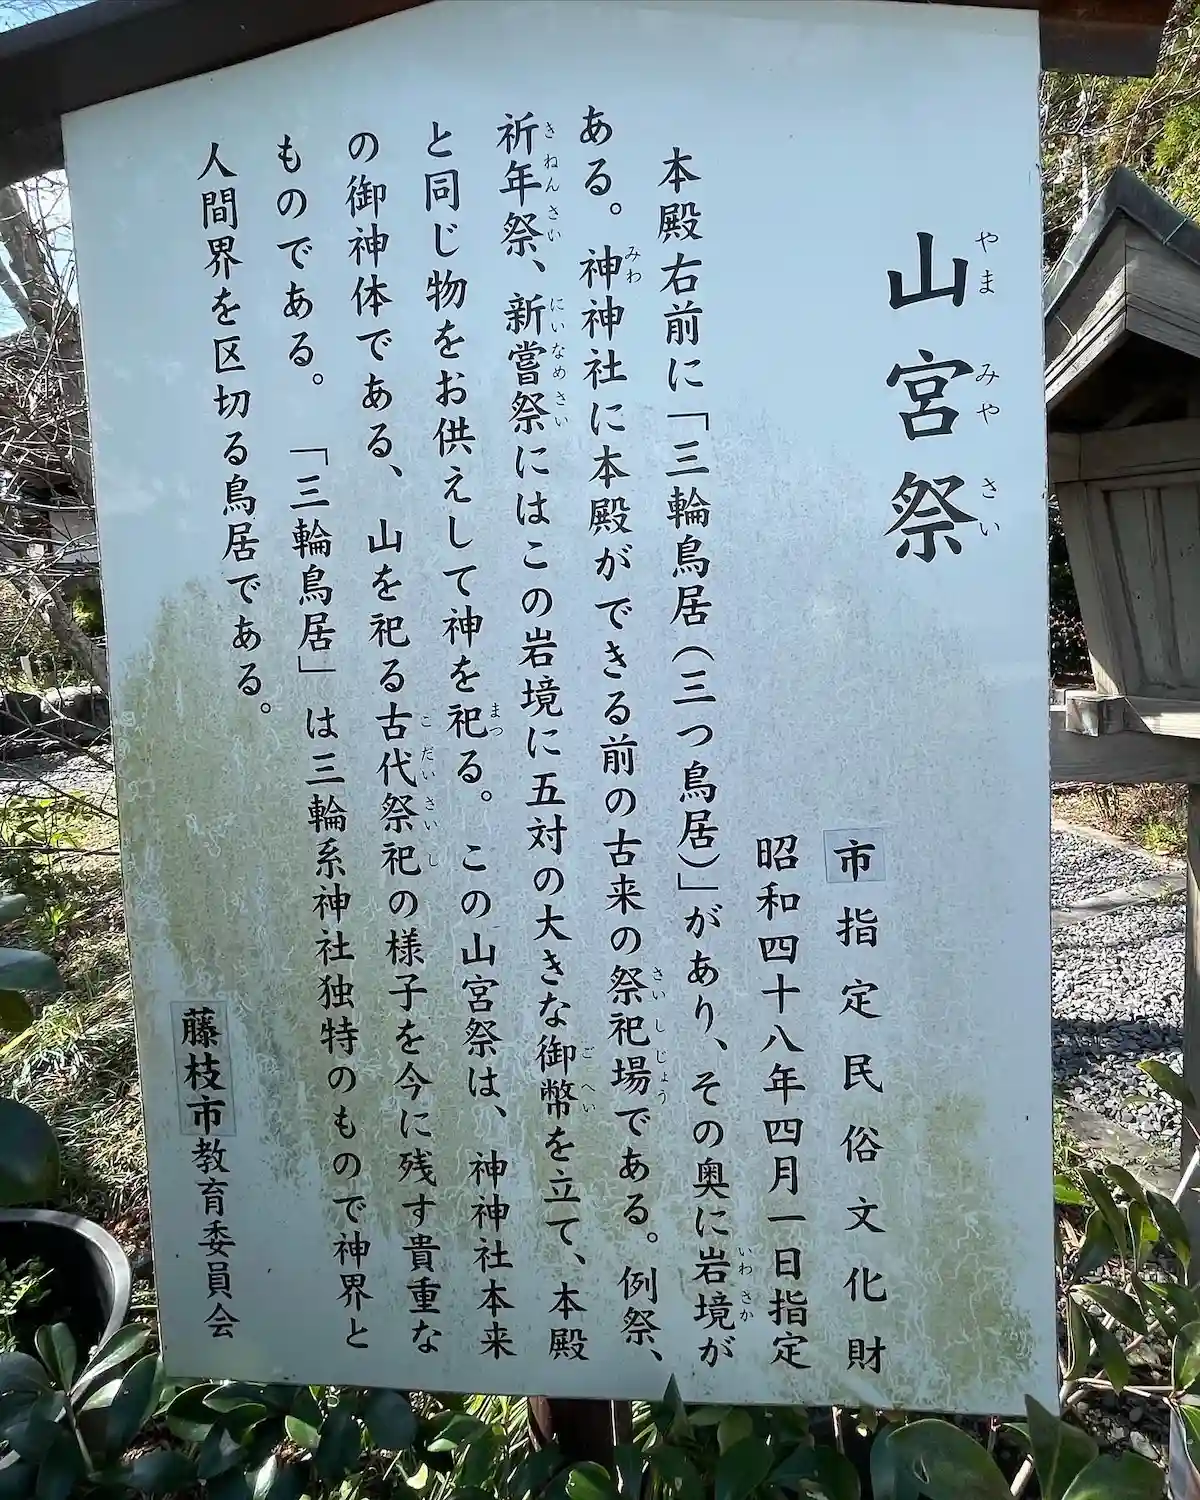 山宮祭
市指定民俗文化財
昭和四十八年四月一日指定
本殿右前に「三輪鳥居(三つ鳥居)」があり、その奥に岩境が
ある。神神社に本殿ができる前の古来の祭祀場である。例祭、
祈年祭、新嘗祭にはこの岩境に五対の大きな御幣を立て、本殿
と同じ物をお供えして神を祀る。この山宮祭は、神神社本来
の御神体である、山を祀る古代祭祀の様子を今に残す貴重な
ものである。「三輪鳥居」は三輪系神社独特のもので神界と
人間界を区切る鳥居である。
藤枝市教育委員会
やま みや さい
いわ さか
みわ
さい し じょう
き ねん さい
にい なめ さい
ご へい
まつ
こ だい さい し